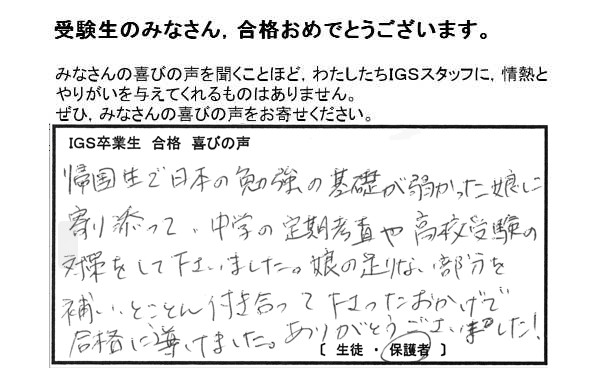 受験生のみなさん，合格おめでとうございます。
みなさんの喜びの声を聞くことほど，わたしたちIGSスタッフに，情熱と
やりがいを与えてくれるものはありません。
ぜひ，みなさんの喜びの声をお寄せください。
IGS卒業生 合格 喜びの声
帰国生で日本の勉強の基礎が弱かった娘に
寄り添って、中学の定期考査や高校受験の
対策をして下さいました。娘の足りない部分を
補い、とことん付き合って下さったおかげで
合格に導けました。ありがとうございました!
〔 生徒 ・ 保護者 〕